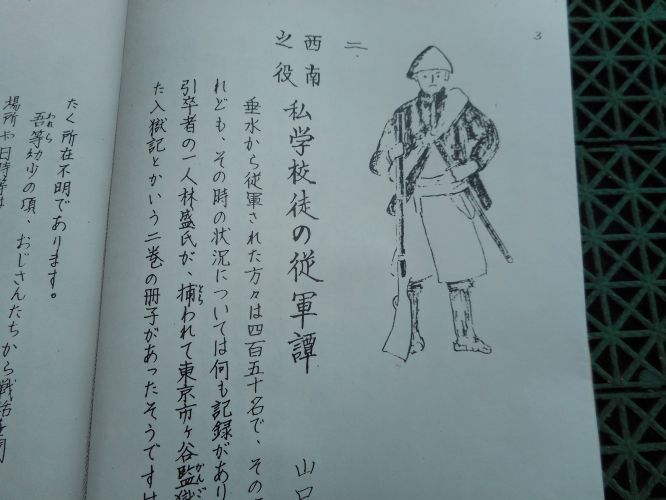 3
二
西南
之役
私学校徒の従軍譚
山口
垂水から従軍された方々は四百五十名で、その
れども、その時の状況については何も記録があり
引卒者の一人林盛氏が、捕われて東京市ヶ谷監獄
とら
かんご
た入獄記とかいう二巻の冊子があったそうですけ
たく所在不明であります。
吾等幼少の頃、おじさんたちから戦話を
われら
場所や日時等は